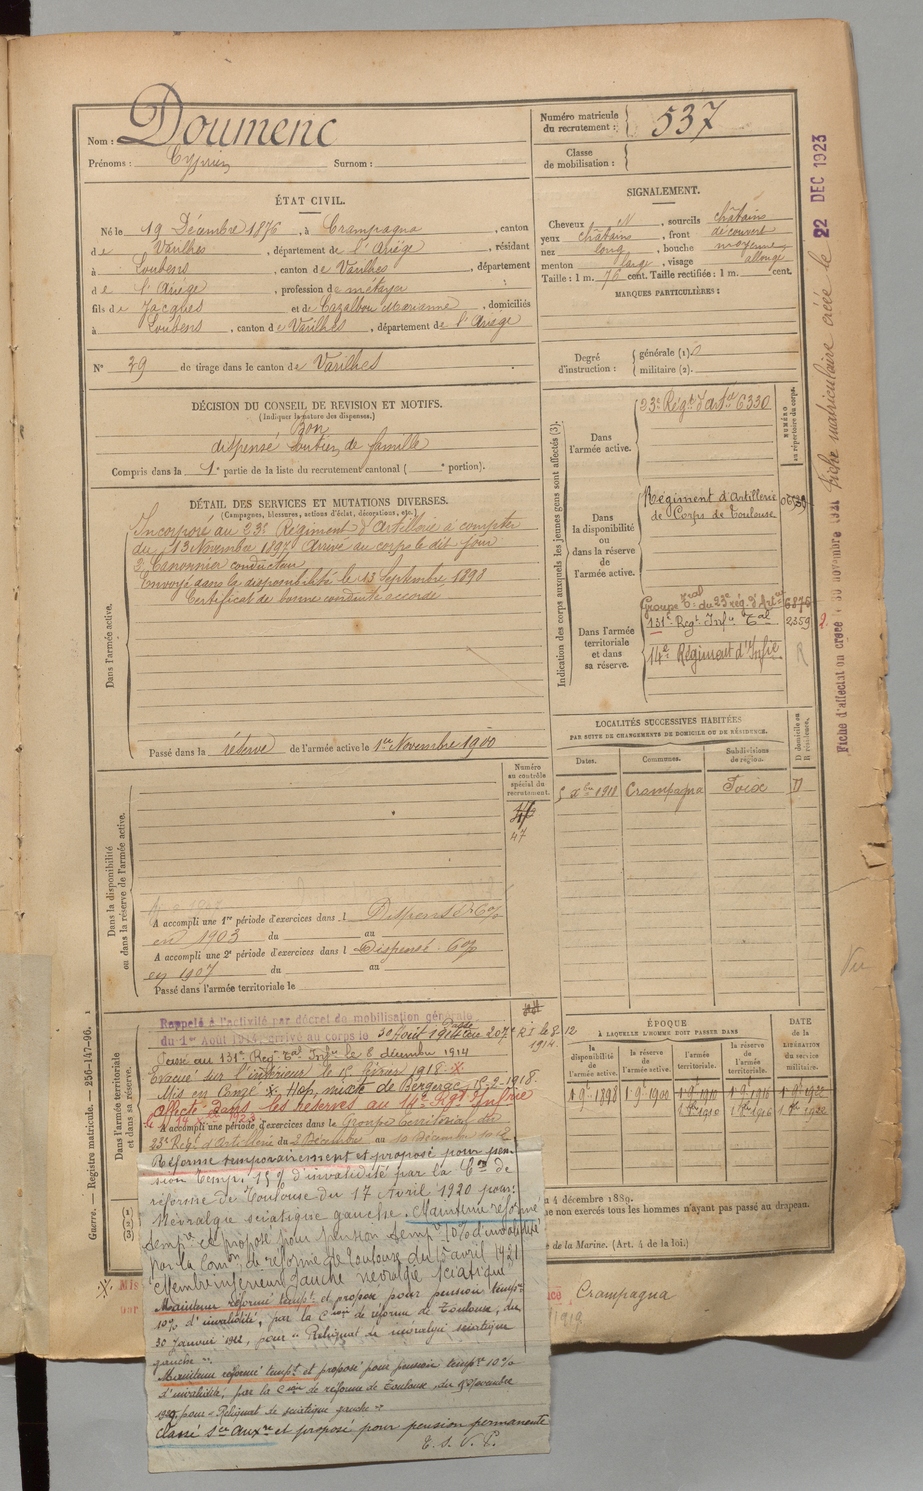 Nom : Doumenc
Prénoms : Cyprien Surnom :
Numéro matricule du recrutement : 537
Classe de mobilisation :
ÉTAT CIVIL.
Né le 19 Décembre 1876, à Crampagna, canton
de Varilhes, département de l'Ariège, résidant
à Loubens, canton de Varilhes, département
de l'Ariège, profession de métayer
fils de Jacques et de Cazalbou Marianne, domiciliés
à Loubens, canton de Varilhes, département de l'Ariège
N° 29 de tirage dans le canton de Varilhes
SIGNALEMENT.
Cheveux N, sourcils châtains
yeux châtains, front découvert
nez long, bouche moyenne
menton large, visage allongé
Taille : 1 m. 76 cent. Taille rectifiée : 1 m. cent.
MARQUES PARTICULIÈRES :
Degré d'instruction : générale (1). 0
militaire (2).
DÉCISION DU CONSEIL DE REVISION ET MOTIFS.
(Indiquer la nature des dispenses.)
Bon
dispensé soutien de famille
Compris dans la 1e partie de la liste du recrutement cantonal ( e portion).
DÉTAIL DES SERVICES ET MUTATIONS DIVERSES.
(Campagnes, blessures, actions d'éclat, décorations, etc.)
Dans l'armée active.
Incorporé au 23e Régiment d'Artillerie à compter
du 13 Novembre 1897. Arrivé au corps le dit jour
2e Canonnier conducteur
Envoyé dans la disponibilité le 13 Septembre 1898
Certificat de bonne conduite accordé
Passé dans la réserve de l'armée active le 1er Novembre 1900
Indication des corps auxquels les jeunes gens sont affectés (3).
NUMÉRO au répertoire du corps.
Dans l'armée active.
23e Régt d'Artie 6330
Dans la disponibilité ou dans la réserve de l'armée active.
Régiment d'Artillerie
de Corps de Toulouse
Dans l'armée territoriale et dans sa réserve.
Groupe Tal du 23e rég. d'Artie 6876
131e Regt Infie Tal 2359
14e Régiment d'Infie R
LOCALITÉS SUCCESSIVES HABITÉES
PAR SUITE DE CHANGEMENTS DE DOMICILE OU DE RÉSIDENCE.
Dates. Communes. Subdivisions de région. D domicile ou R résidence.
5 Xbre 1918 Crampagna Foix D
Numéro au contrôle spécial du recrutement.
47
Dans la disponibilité ou dans la réserve de l'armée active.
A accompli une 1re période d'exercices dans l Dispensé 6%
en 1903 du au
A accompli une 2e période d'exercices dans l Dispensé 6%
en 1907 du au
Passé dans l'armée territoriale le
Dans l'armée territoriale et dans sa réserve.
Rappelé à l'activité par décret de mobilisation générale
du 1er Août 1914, arrivé au corps le 30 Août 1914 Passé au 207e R.I. le 8 12 1914.
Passé au 131e Regt Tal Infie le 8 décembre 1914
Evacué sur l'intérieur le 15 février 1918. x
Mis en Congé x Hop. mixte de Bergerac 15-2-1918.
Affecté dans les réserves au 14e Rgt Infrie
A accompli une période d'exercices dans le Groupe Territorial du
23e Régt d'Artillerie du 2 Décembre au 10 Décembre
ÉPOQUE
À LAQUELLE L'HOMME DOIT PASSER DANS
la disponibilité de l'armée active. la réserve de l'armée active. l'armée territoriale. la réserve de l'armée territoriale.
DATE de la LIBÉRATION du service militaire.
1 9e 1898 1 9e 1900 1 9e 1910 1 9e 1916 1 9e 1922
Réformé temporairement et proposé pour pen-
sion temp. 15% d'invalidité par la Con de
réforme de Toulouse du 17 Avril 1920 pour :
Névralgie sciatique gauche. Maintenu réformé
tempre et proposé pour pension tempre 10% d'invalidité
par la Comon de réforme de Toulouse du 15 avril 1921
Membre inférieur gauche névralgie sciatique
Maintenu réformé tempt et proposé pour pension tempre
10% d'invalidité, par la Coion de réforme de Toulouse, du
30 Janvier 1922, pour "Reliquat de névralgie sciatique
gauche".
Maintenu réformé tempt et proposé pour pension tempre 10%
d'invalidité, par la Coion de réforme de Toulouse, du Novembre
pour "Reliquat de sciatique gauche"
Classé Sce Auxre et proposé pour pension permanente
T. S. V. P.
u 4 décembre 1889.
ne non exercés tous les hommes n'ayant pas passé au drapeau.
e de la Marine. (Art. 4 de la loi.)
Crampagna
1919
Guerre. — Registre matricule. — 256-147-96.
Fiche d'affectation créée le 30 novembre 1921
fiche matriculaire créée le 22 DEC 1923
Vu